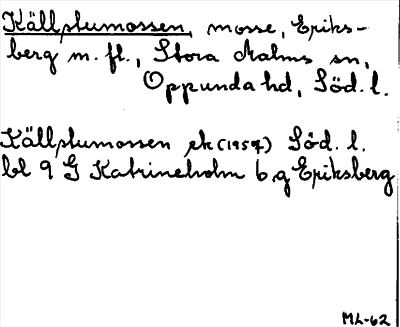 Källstumossen, mosse, Eriks-
berg m. fl., Stora Malms sn,
Oppunda hd, Söd. l.
Källstumossen ek (1957) Söd. l.
bl 9 G Katrineholm 6 g Eriksberg
ML-62